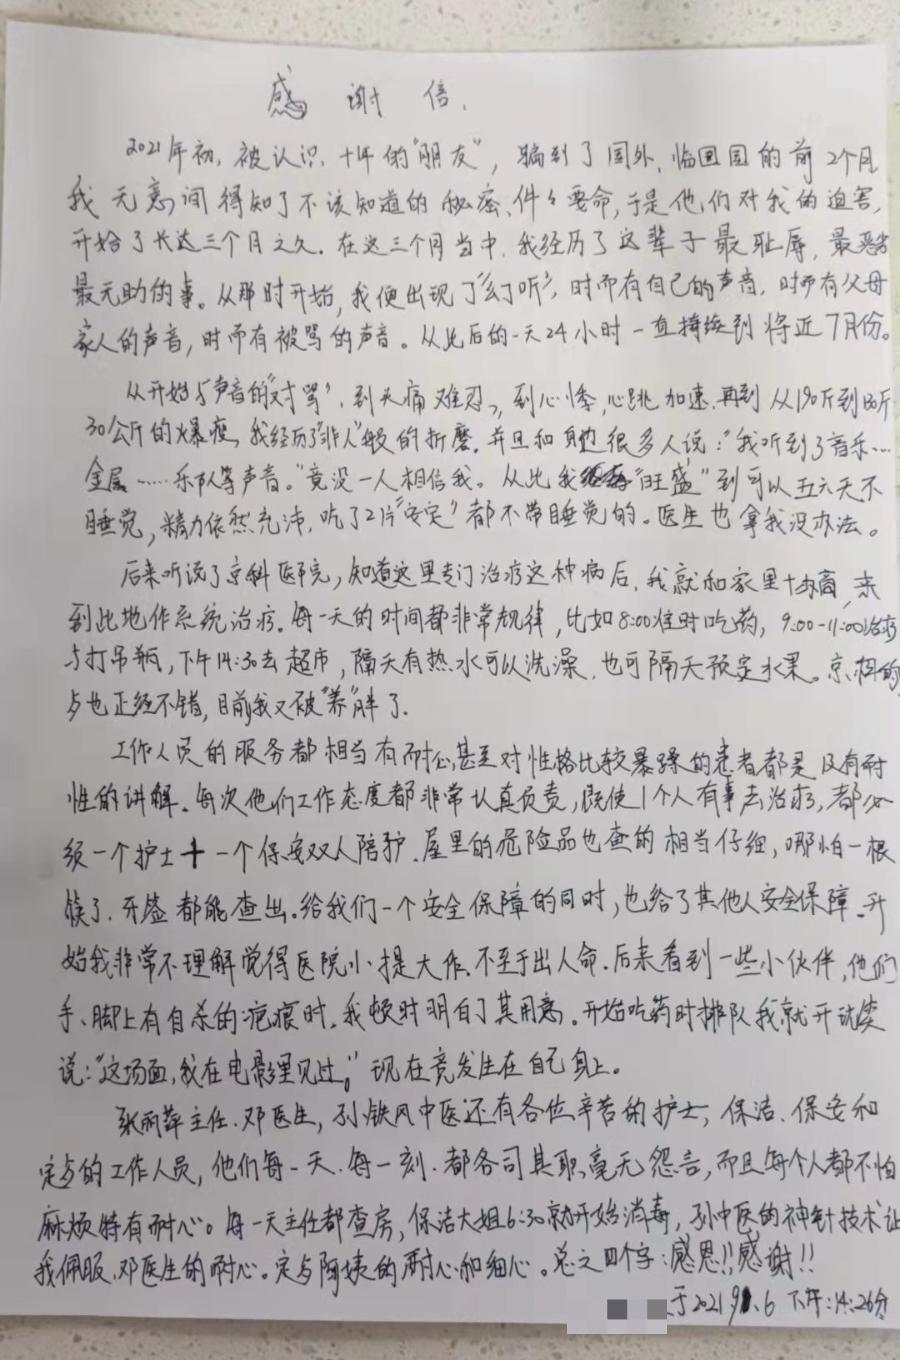 感谢信.
2021年初,被认识,十年的"朋友",骗到了国外,临回国的前2个月
我无意间得知了不该知道的秘密,件々要命,于是他们对我的迫害,
开始了长达三个月之久.在这三个月当中,我经历了这辈子最耻辱,最恶
最无助的事。从那时开始,我便出现了"幻听",时而有自己的声音,时而有父母
家人的声音,时而有被骂的声音。从此后的一天24小时一直持续到将近7月份。
从开始与声音的"对骂",到头痛难忍,到心悸,心跳加速,再到从190斤到130斤
30公斤的爆瘦,我经历了"非人"般的折磨.并且和身边很多人说:"我听到了音乐…
金属……乐队等声音。"竟没一人相信我。从此我"旺盛"到可以五六天不
睡觉,精力依然充沛,吃了2片"安定"都不带睡觉的。医生也拿我没办法。
后来听说了京科医院,知道这里专门治疗这种病后,我就和家里人协商,来
到此地作系统治疗.每一天的时间都非常规律,比如8:00准时吃药,9:00-11:00治疗
与打吊瓶,下午14:30去超市,隔天有热水可以洗澡,也可隔天预定水果。京科的
歺也正经不错,目前我又被"养"胖了.
工作人员的服务都相当有耐心,甚至对性格比较暴躁的患者都是没有耐
性的讲解.每次他们工作态度都非常认真负责,既使1个人有事去治疗,都必
须一个护士+一个保安双人陪护.屋里的危险品也查的相当仔细,哪怕一根
筷子.牙签都能查出.给我们一个安全保障的同时,也给了其他人安全保障.开
始我非常不理解觉得医院小提大作.不至于出人命.后来看到一些小伙伴,他们
手、脚上有自杀的疤痕时,我顿时明白了其用意.开始吃药时排队我就开试笑
说:"这场面,我在电影里见过。"现在竟发生在自己身上。
张丽萍主任.邓医生,孙铁风中医还有各位辛苦的护士,保洁.保安和
定歺的工作人员,他们每一天.每一刻.都各司其职,毫无怨言,而且每个人都不怕
麻烦特有耐心。每一天主任都查房,保洁大姐6:30就开始消毒,孙中医的神针技术让
我佩服.邓医生的耐心。定歺阿姨的耐心和细心。总之四个字:感恩!!感谢!!
于2021 9.6 下午:14:26分